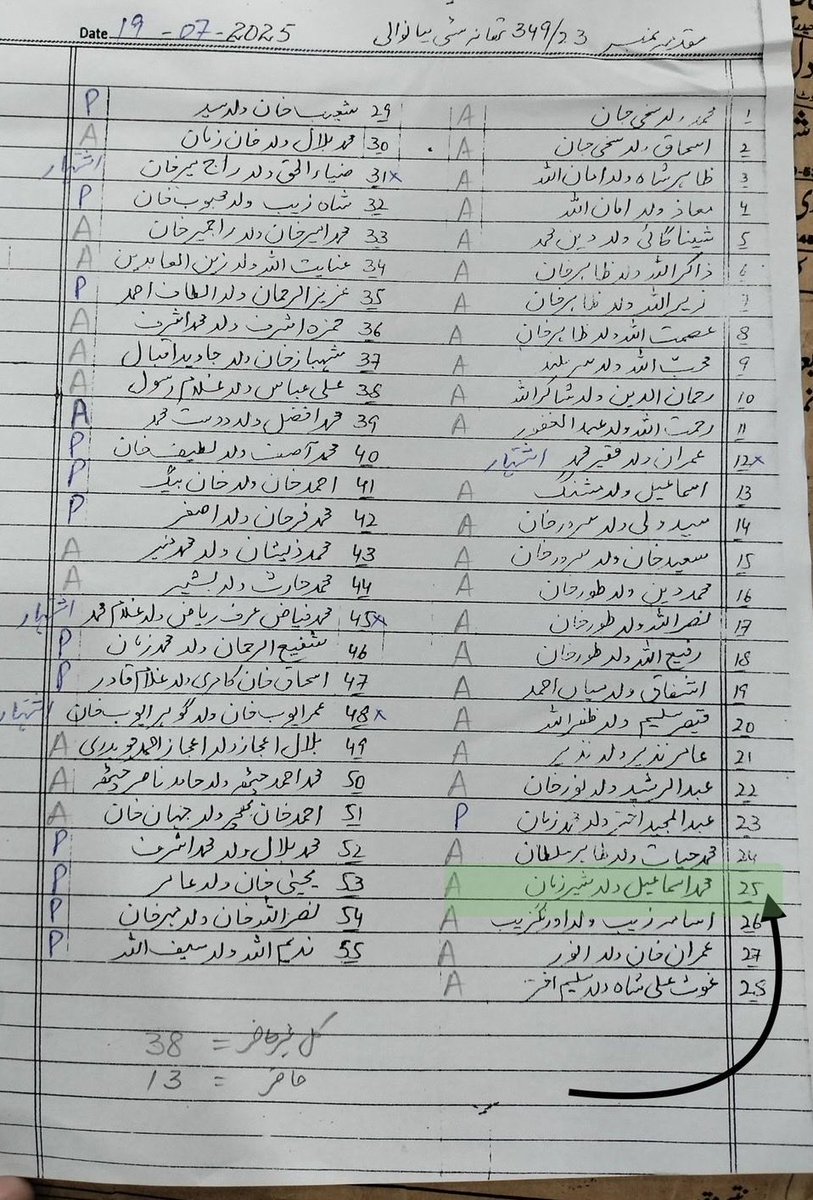 مقدمہ نمبر 349/23 تھانہ سٹی میانوالی
Date 19-07-2025
1 محمد ولد سخی جان A
2 اسحاق ولد سخی جان A
3 ظاہر شاہ ولد امان اللہ A
4 معاذ ولد امان اللہ A
5 شینا گائی ولد دین محمد A
6 ذاکر اللہ ولد ظاہر خان A
7 زیر اللہ ولد ظاہر خان A
8 عصمت اللہ ولد ظاہر خان A
9 محب اللہ ولد A
10 رحمان الدین ولد شاکر اللہ A
11 رحمت اللہ ولد عبد الغفور A
12x عمران ولد فقیر محمد اشتہار
13 اسماعیل ولد A
14 سید ولی ولد سرور خان A
15 سعید خان ولد سرور خان A
16 محمد دین ولد طور خان A
17 نصر اللہ ولد طور خان A
18 رفیع اللہ ولد طور خان A
19 اشفاق ولد میاں احمد A
20 قیصر سلیم ولد ظفر اللہ A
21 عامر نذیر ولد نذیر A
22 عبدالرشید ولد نور خان A
23 عبدالمجید اختر ولد محمد زمان P
24 محمد حیات ولد ظاہر سلطان A
25 محمد اسماعیل ولد شیر زمان A
26 اسامہ زیب ولد اورنگزیب A
27 عمران خان ولد انور A
28 غوث علی شاہ ولد سلیم اختر A
29 شعیب خان ولد سید P
30 محمد بلال ولد خان زمان A
31x ضیاء الحق ولد راج میر خان اشتہار
32 شاہ زیب ولد محبوب خان P
33 محمد امیر خان ولد راجمیر خان A
34 عنایت اللہ ولد زین العابدین A
35 عزیز الرحمان ولد الطاف احمد P
36 حمزہ اشرف ولد محمد اشرف A
37 شہباز خان ولد جاوید اقبال A
38 علی عباس ولد غلام رسول A
39 محمد افضل ولد دوست محمد A
40 محمد آصف ولد لطیف خان P
41 احمد خان ولد خان بیگ P
42 محمد فرحان ولد اصغر P
43 محمد ذیشان ولد محمد منیر A
44 محمد حارث ولد بشیر A
45x محمد فیاض عرف ریاض ولد غلام محمد اشتہار
46 شفیع الرحمان ولد محمد زمان P
47 اسحاق خان ولد غلام قادر P
48x عمر ایوب خان ولد گوہر ایوب خان اشتہار
49 بلال اعجاز ولد اعجاز احمد چوہدری A
50 محمد احمد چٹھہ ولد حامد ناصر چٹھہ A
51 احمد خان بھچر ولد جہان خان A
52 محمد بلال ولد محمد اشرف P
53 یحییٰ خان ولد عامر P
54 نصر اللہ خان ولد مہر خان P
55 ندیم اللہ ولد سیف اللہ P
کل غیر حاضر = 38
حاضر = 13